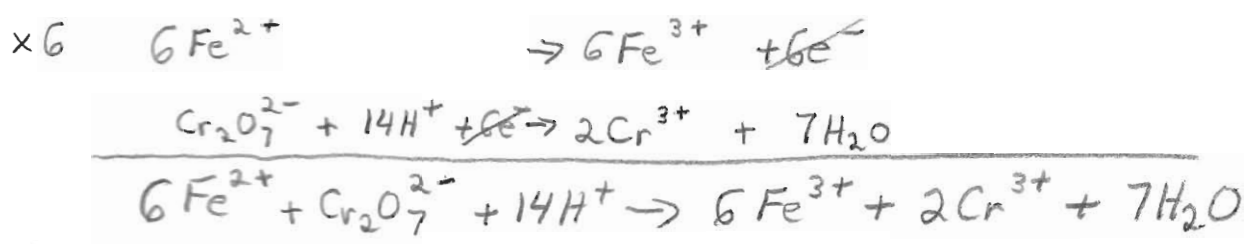 ×6 6Fe²⁺ → 6Fe³⁺ +6e⁻
Cr₂O₇²⁻ + 14H⁺ +6e⁻ → 2Cr³⁺ + 7H₂O
6Fe²⁺ + Cr₂O₇²⁻ + 14H⁺ → 6Fe³⁺ + 2Cr³⁺ + 7H₂O